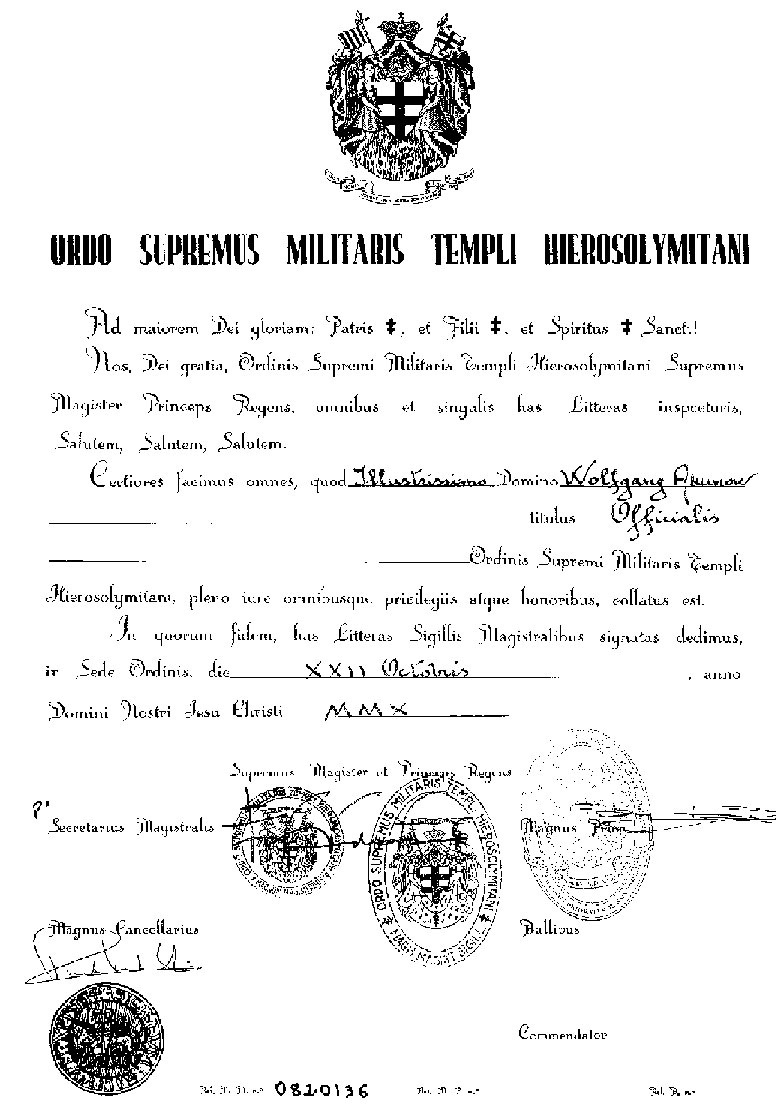 ORDO SUPREMUS MILITARIS TEMPLI HIEROSOLYMITANI
Ad maiorem Dei gloriam: Patris ‡, et Filii ‡, et Spiritus ‡ Sanct.!
Nos, Dei gratia, Ordinis Supremi Militaris Templi Hierosolymitani Supremus
Magister Princeps Regens, omnibus et singulis has Litteras inspecturis,
Salutem, Salutem, Salutem.
Certiores facimus omnes, quod Illustrissimo Domino Wolfgang
titulus Officialis
Ordinis Supremi Militaris Templi
Hierosolymitani, pleno iure omnibusque privilegiis atque honoribus, collatus est.
In quorum fidem, has Litteras Sigillis Magistralibus signatas dedimus,
in Sede Ordinis, die XXII Octobris, anno
Domini Nostri Jesu Christi MMX
Supremus Magister et Princeps Regens
Secretarius Magistralis
Magnus Prior
ORDO SUPREMUS MILITARIS TEMPLI HIEROSOLYMITANI
Magnus Cancellarius
Ballivus
Commendator
0820136